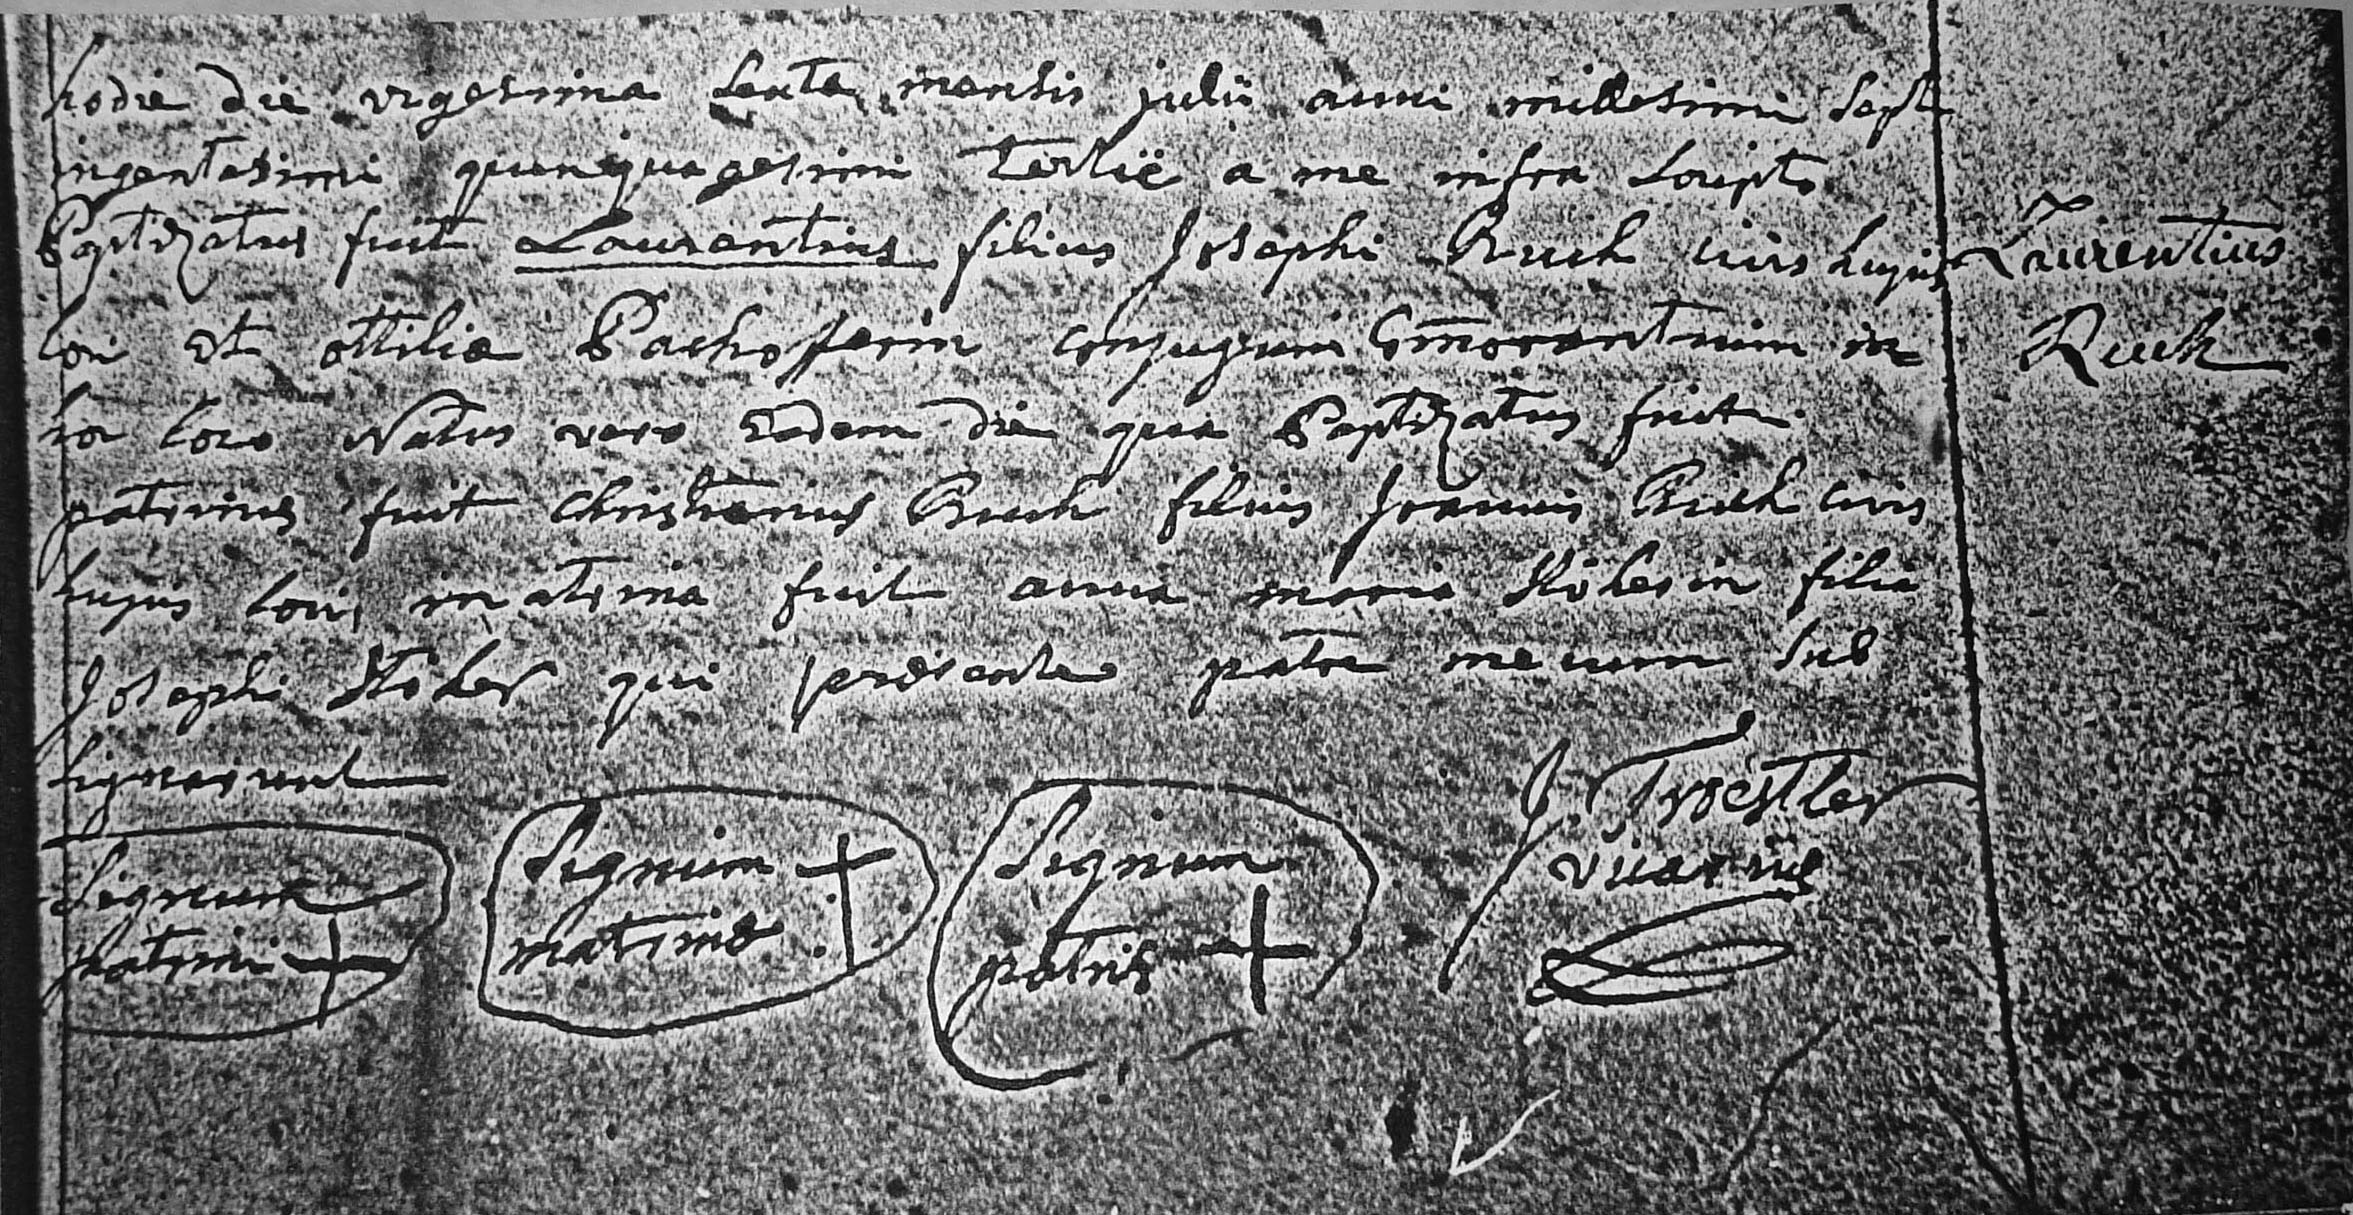 hodie die vigesima sexta mensis julii anni millesimi septi
ingentesimi quinquagesimi tertii a me infra scripto
Baptizatus fuit Laurentius filius Josephi Ruch civis hujus
loci et ottiliæ conjugum Com̄orantium in
hoc loco Natus vero eadem die qua Baptizatus fuit
patrinus fuit Christianus Ruch filius Joannis Ruch civis
hujus loci, matrina fuit anna maria Stöhrin filia
Josephi Stöher qui presente patre mecum sub
signarunt
Laurentius
Ruch
Signum
patrini +
Signum +
matrinæ
Signum
patris +
J. Troestler
vicarius